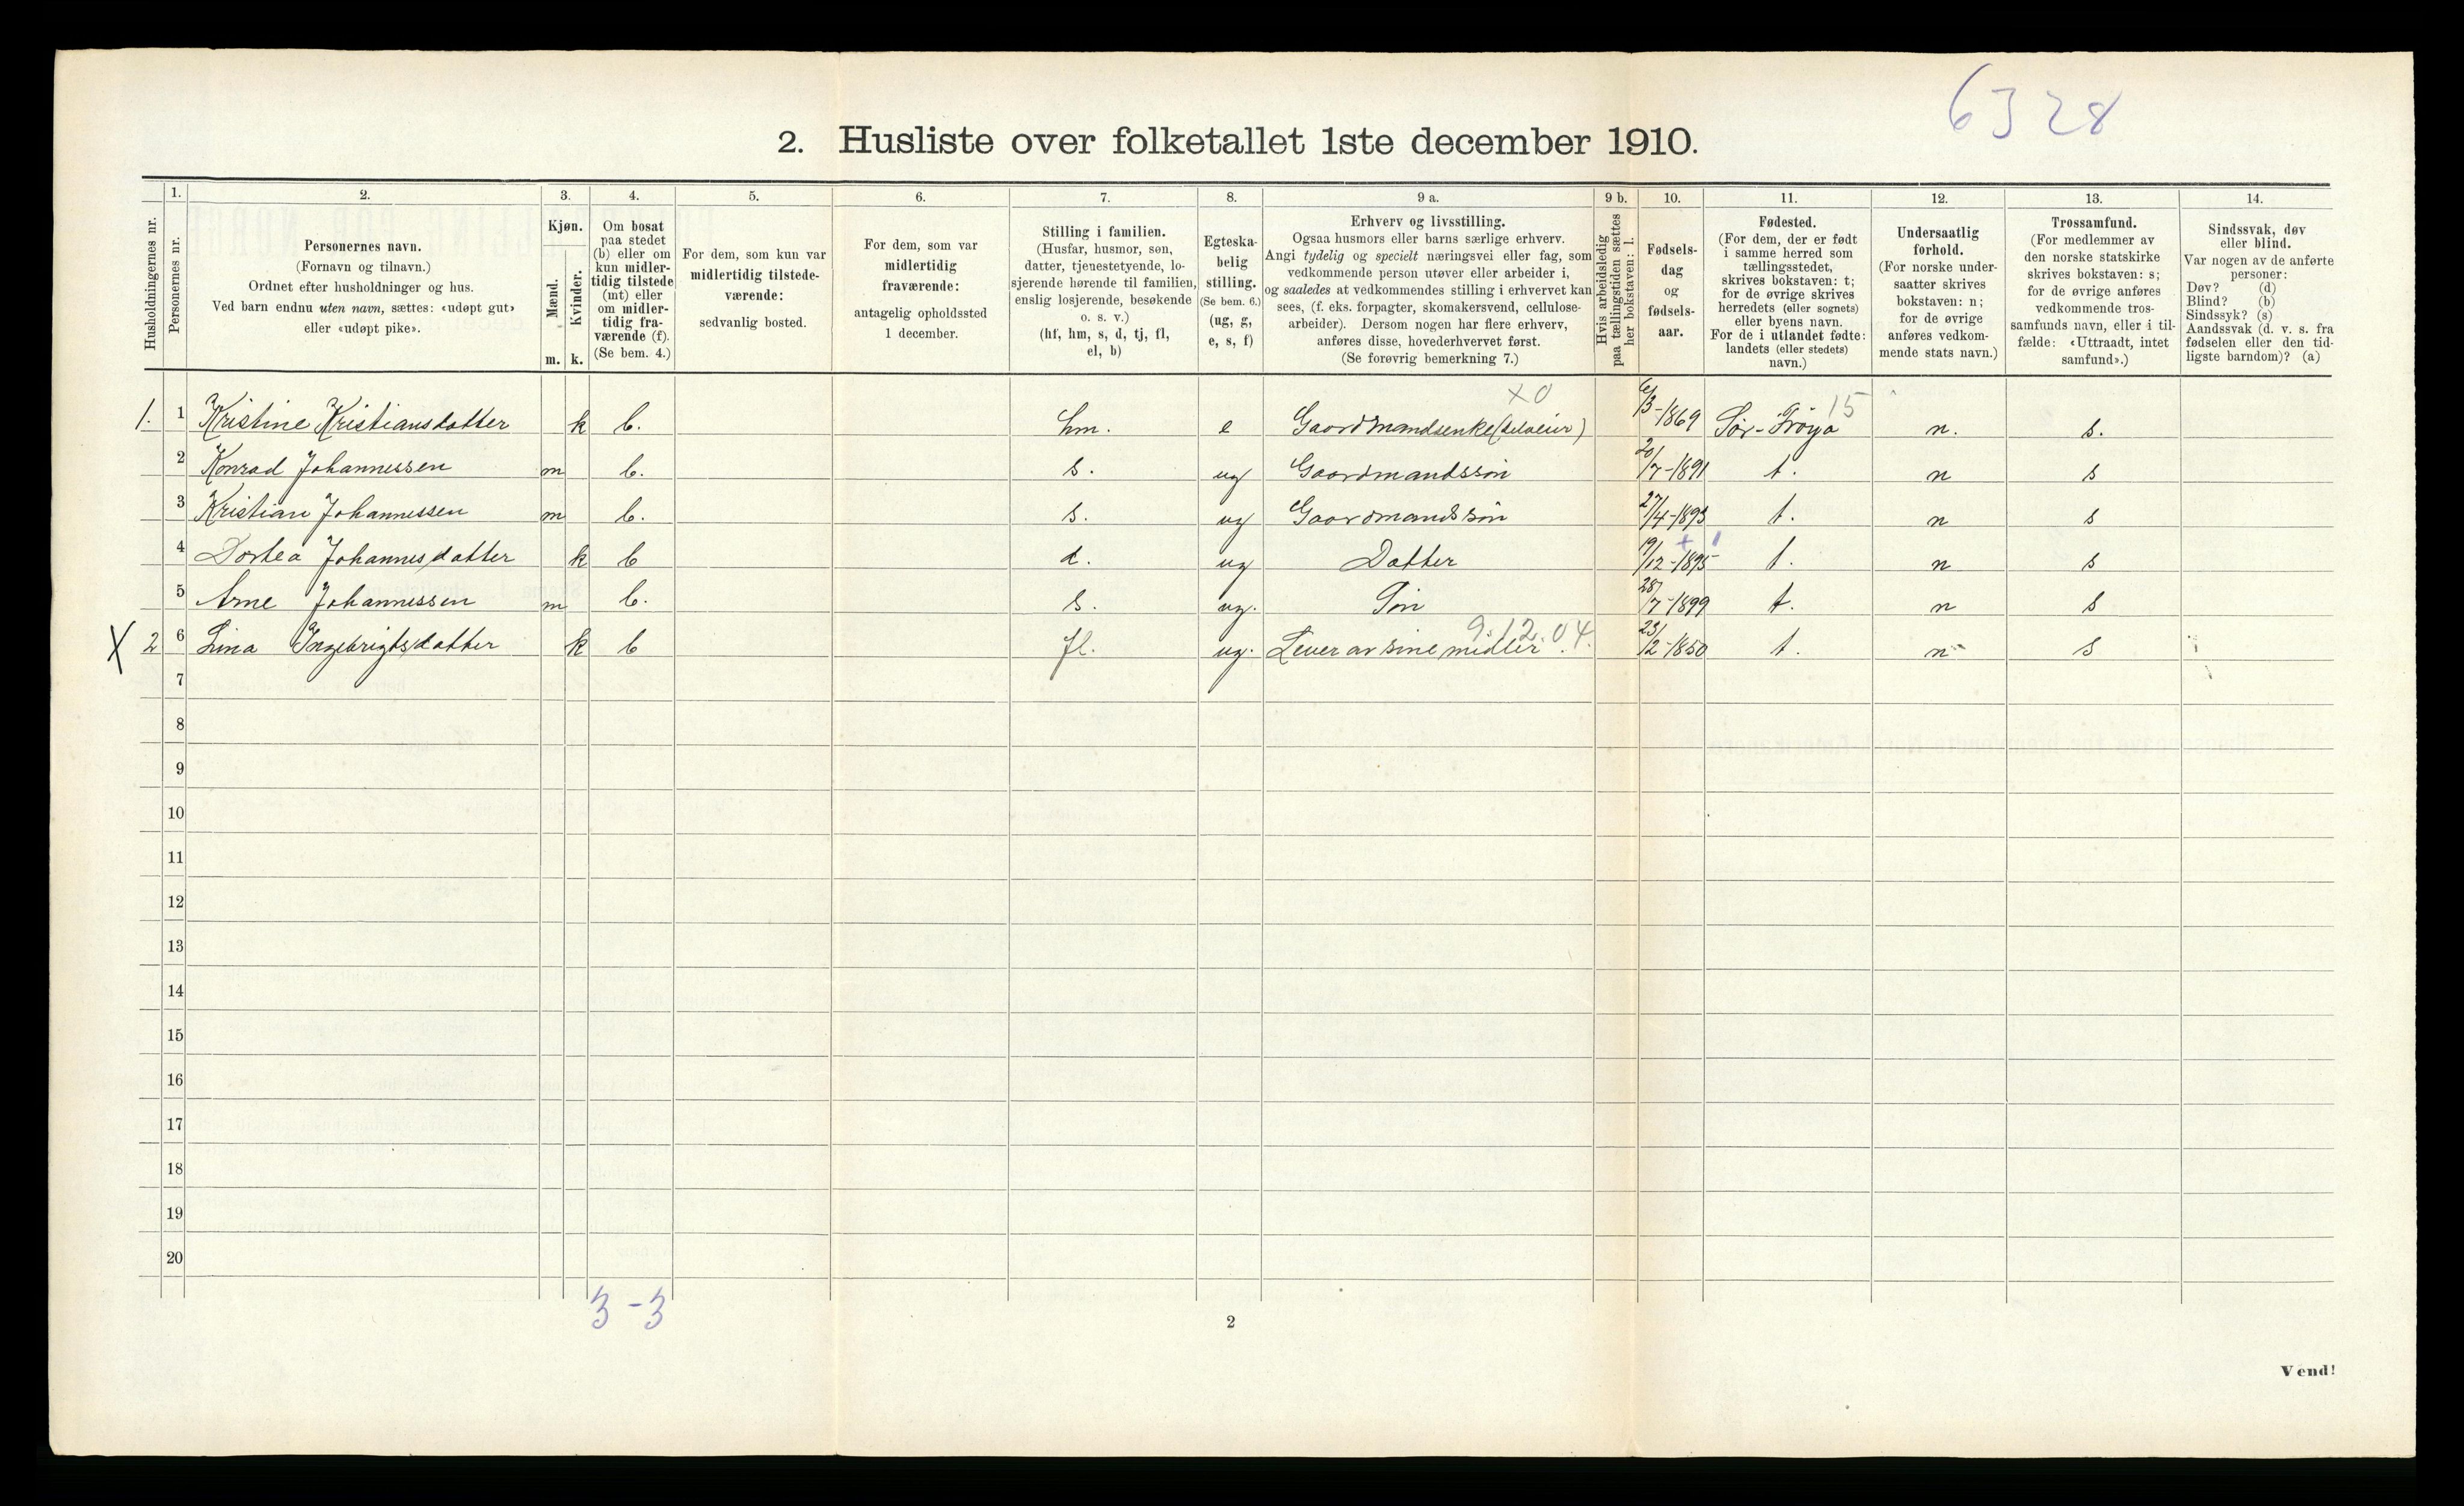 6328
2. Husliste over folketallet 1ste december 1910.
Husholdningernes nr.
1. Personernes nr.
2. Personernes navn.
(Fornavn og tilnavn.)
Ordnet efter husholdninger og hus.
Ved barn endnu uten navn, sættes: «udøpt gut»
eller «udøpt pike».
3. Kjøn.
Mænd. m.
Kvinder. k.
4. Om bosat
paa stedet
(b) eller om
kun midler-
tidig tilstede
(mt) eller
om midler-
tidig fra-
værende (f).
(Se bem. 4.)
5. For dem, som kun var
midlertidig tilstede-
værende:
sedvanlig bosted.
6. For dem, som var
midlertidig
fraværende:
antagelig opholdssted
1 december.
7. Stilling i familien.
(Husfar, husmor, søn,
datter, tjenestetyende, lo-
sjerende hørende til familien,
enslig losjerende, besøkende
o. s. v.)
(hf, hm, s, d, tj, fl,
el, b)
8. Egteska-
belig
stilling.
(Se bem. 6.)
(ug, g,
e, s, f)
9 a. Erhverv og livsstilling.
Ogsaa husmors eller barns særlige erhverv.
Angi tydelig og specielt næringsvei eller fag, som
vedkommende person utøver eller arbeider i,
og saaledes at vedkommendes stilling i erhvervet kan
sees, (f. eks. forpagter, skomakersvend, cellulose-
arbeider). Dersom nogen har flere erhverv,
anføres disse, hovederhvervet først.
(Se forøvrig bemerkning 7.)
9 b. Hvis arbeidsledig
paa tællingstiden sættes
her bokstaven: l.
10. Fødsels-
dag
og
fødsels-
aar.
11. Fødested.
(For dem, der er født
i samme herred som
tællingsstedet,
skrives bokstaven: t;
for de øvrige skrives
herredets (eller sognets)
eller byens navn.
For de i utlandet fødte:
landets (eller stedets)
navn.)
12. Undersaatlig
forhold.
(For norske under-
saatter skrives
bokstaven: n;
for de øvrige
anføres vedkom-
mende stats navn.)
13. Trossamfund.
(For medlemmer av
den norske statskirke
skrives bokstaven: s;
for de øvrige anføres
vedkommende tros-
samfunds navn, eller i til-
fælde: «Uttraadt, intet
samfund».)
14. Sindssvak, døv
eller blind.
Var nogen av de anførte
personer:
Døv? (d)
Blind? (b)
Sindssyk? (s)
Aandssvak (d. v. s. fra
fødselen eller den tid-
ligste barndom)? (a)
x0 15
1. 1 Kristine Kristiansdatter k b. hm. e Gaordmandsenke (selveier) 6/3-1869 Sør-Frøya n. s.
2 Konrad Johannessen m b. s. ug Gaordmandssøn 20/7-1891 t. n s
3 Kristian Johannessen m b. s. ug Gaordmandssøn 27/4-1893 t. n s
4 Dortea Johannesdatter k b d. ug Datter 19/12-1895 t. n s
5 Arne Johannessen m b. s. ug. Søn 28/7-1899 t. n s
9.12.04
X 2 6 Lina Ingebrigtsdatter k b fl. ug. Lever av sine midler. 23/2-1850 t. n s
7
8
9
10
11
12
13
14
15
16
17
18
19
20
3-3
2
Vend!